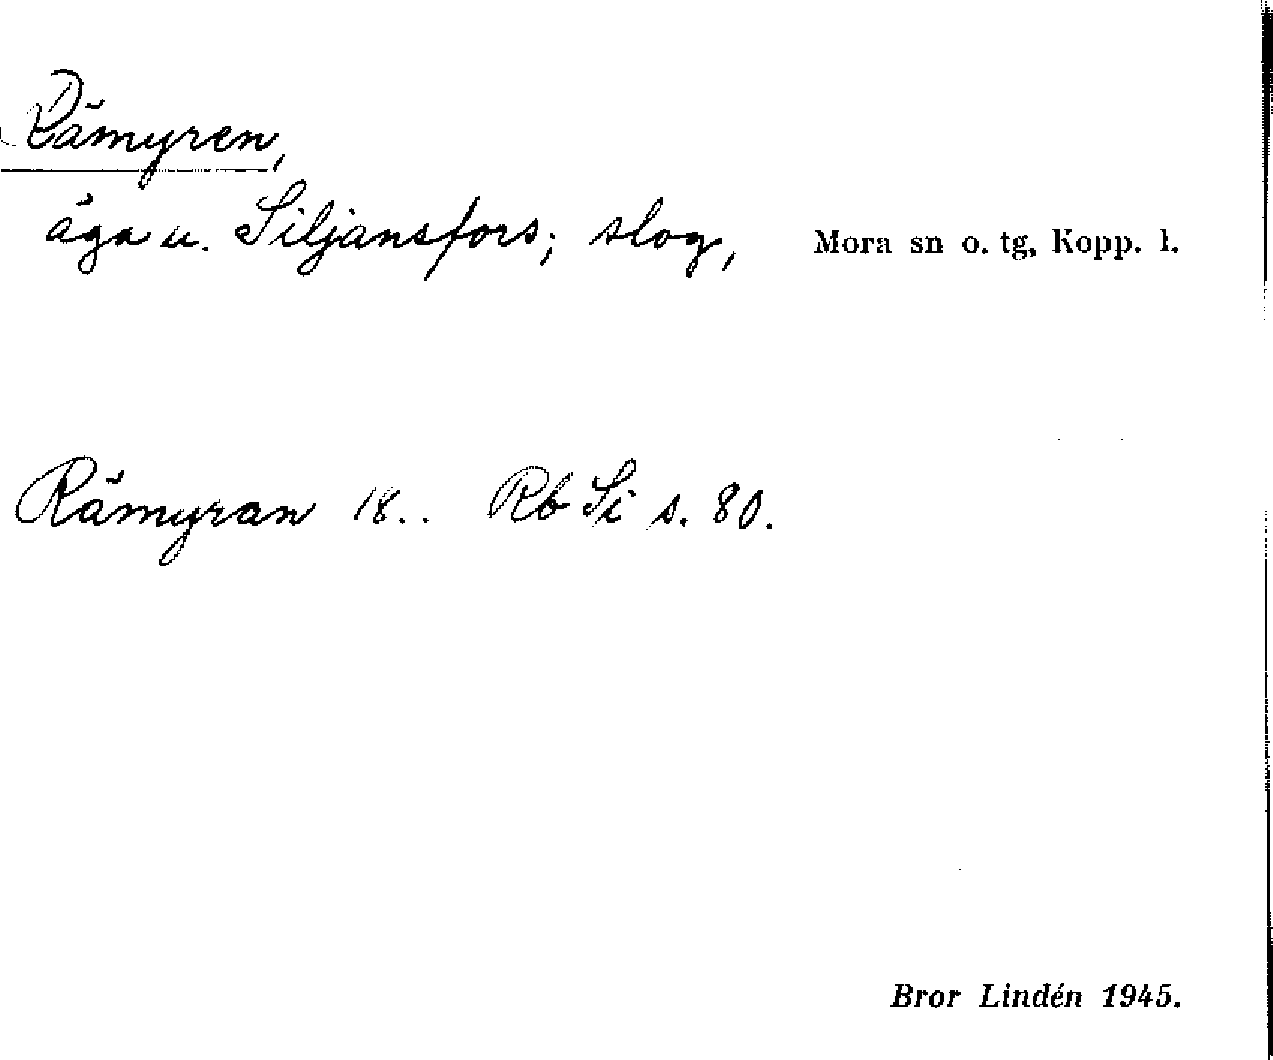 Rämyren,
äga u. Siljansfors; slog, Mora sn o. tg, Kopp. l.
Rämyran 18.. Rb Si s. 80.
Bror Lindén 1945.